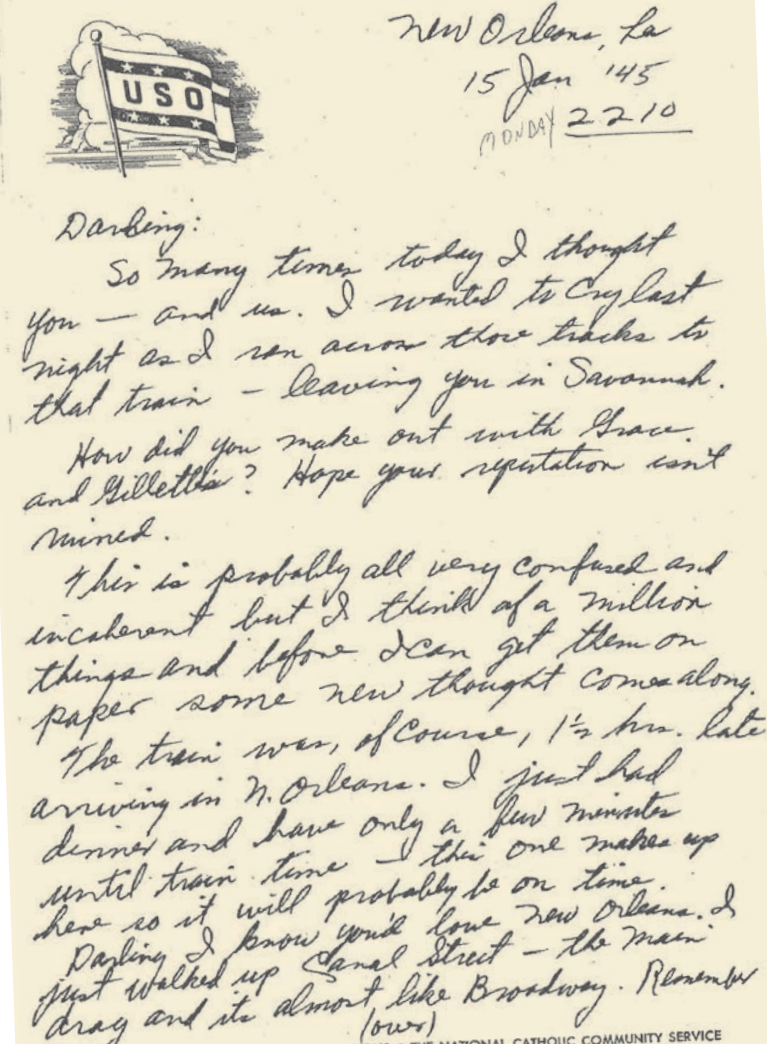 USO
New Orleans, La
15 Jan '45
MONDAY 2210
Darling:
So many times today I thought
you — and us. I wanted to Cry last
night as I ran across those tracks to
that train – leaving you in Savannah.
How did you make out with Grace
and Gillette's? Hope your reputation isn't
ruined.
This is probably all very confused and
incoherent but I think of a million
things and before I can get them on
paper some new thought comes along.
The train was, of Course, 1½ hrs. late
arriving in N. Orleans. I just had
dinner and have only a few minutes
until train time – this one makes up
here so it will probably be on time.
Darling I know you'd love New Orleans. I
just walked up Canal Street – the main
drag and its almost like Broadway. Remember
(over)
THE NATIONAL CATHOLIC COMMUNITY SERVICE